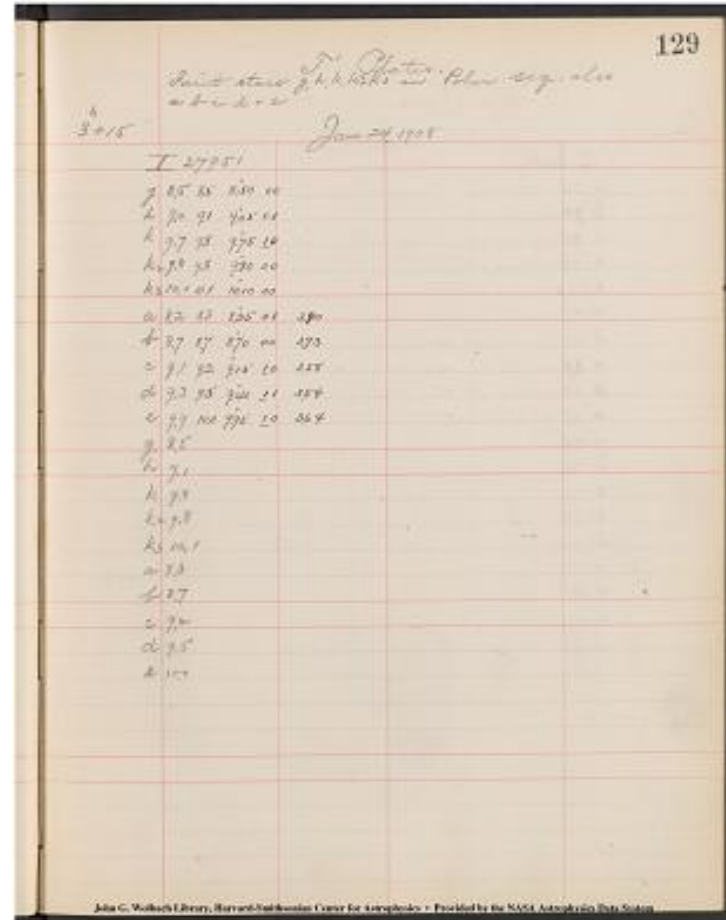 129
Faint stars g, h, k, k2 k3 in Polar seq. also
a b c d + e
h
3 + 15
Jan 24 1908
I 27951
g 8.5 8.5 8.50 00
h 9.0 9.1 9.05
k 9.7 9.8 9.75
k2 9.8 9.8 9.80 00
k3 10.1 10.1 10.10 00
a 8.2 8.3 8.25
b 8.7 8.7 8.70 00
c 9.1 9.2 9.15
d 9.3 9.5 9.40
e 9.9 10.0 9.95 264
g 8.5
h 9.1
k 9.8
k2 9.8
k3 10.1
a 8.3
b 8.7
c 9.2
d 9.5
e 10.0
John G. Wolbach Library, Harvard-Smithsonian Center for Astrophysics • Provided by the NASA Astrophysics Data System